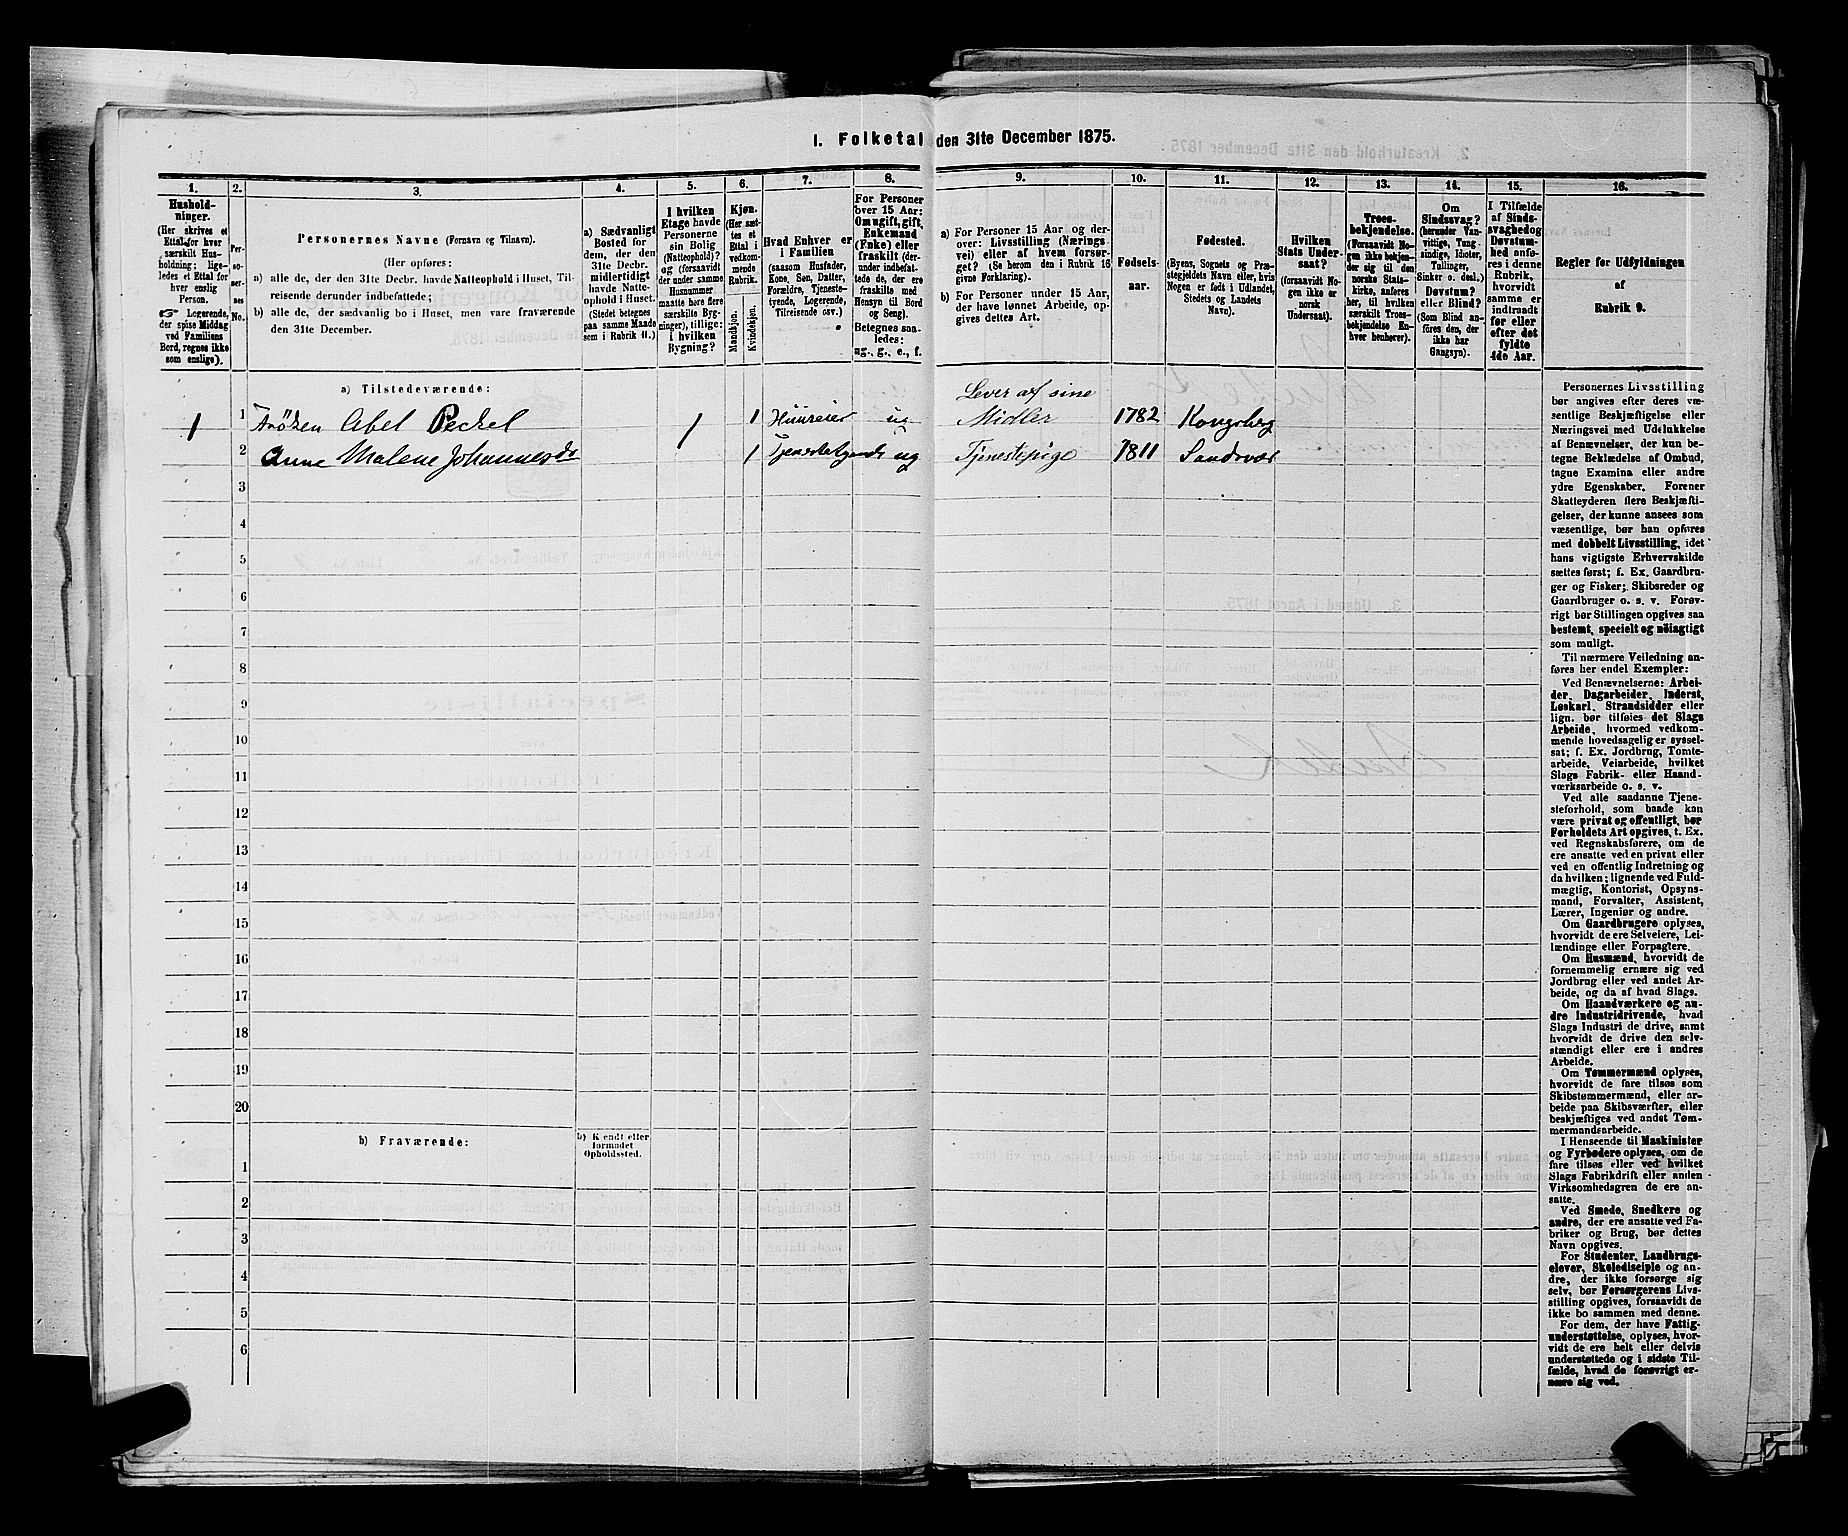 1. Folketal den 31te December 1875.
1.
2.
3.
4.
5.
6.
7.
8.
9.
10.
11.
12.
13.
14.
15.
16.
Hushold-
ninger.
(Her skrives et
Ettal for hver
særskilt Hus-
holdning; lige-
ledes et Ettal for
hver enslig
Person.
☞ Logerende,
der spise Middag
ved Familiens
Bord, regnes ikke
som enslige).
Per-
so-
ner-
nes
No.
Personernes Navne (Fornavn og Tilnavn).
(Her opføres:
a) alle de, der den 31te Decbr. havde Natteophold i Huset, Til-
reisende derunder indbefattede;
b) alle de, der sædvanlig bo i Huset, men vare fraværende
den 31te December.
a) Sædvanligt
Bosted for
dem, der den
31te Decbr.
midlertidigt
havde Natte-
ophold i Huset.
(Stedet betegnes
paa samme Maade
som i Rubrik 11.)
I hvilken
Etage havde
Personerne
sin Bolig
(Natteophold)?
og (forsaavidt
der under samme
Husnummer
maatte høre flere
særskilte Byg-
ninger), tillige:
i hvilken
Bygning?
Kjøn.
(Her sæt-
tes et
Ettal i
vedkom-
mende
Rubrik.
Mandkjøn.
Kvindekjøn.
Hvad Enhver er
i Familien
(saasom Husfader,
Kone, Søn, Datter,
Forældre, Tjeneste-
tyende, Logerende,
Tilreisende osv.)
For Personer
over 15 Aar:
Om ugift, gift,
Enkemand
(Enke) eller
fraskilt (der-
under indbefat-
tede de, der ere
fraskilte med
Hensyn til Bord
og Seng).
Betegnes saa-
ledes:
ug., g., e., f.
a) For Personer 15 Aar og der-
over: Livsstilling (Nærings
vei) eller af hvem forsør-
get? (Se herom den i Rubrik 16
givne Forklaring).
b) For Personer under 15 Aar,
der have lønnet Arbeide, op-
gives dettes Art.
Fødsels-
aar.
Fødested.
(Byens, Sognets og Præ-
stegjeldets Navn eller, hvis
Nogen er født i Udlandet,
Stedets og Landets
Navn).
Hvilken
Stats Under-
saat?
(forsaavidt No-
gen ikke er
norsk
Undersaat).
Troes-
bekjendelse.
(Forsaavidt No-
gen ikke bekjen-
der sig til den
norske Stats-
kirke, anføres
her, til hvilken
særskilt Troes-
bekjendelse En-
hver henhører).
Om
Sindssvag?
(herunder Van-
vittige, Tung-
sindige, Idioter,
Tullinger,
Sinker o. desl.)
Døvstum?
eller Blind?
(Som Blind an-
føres den, der
ikke har
Gangsyn).
I Tilfælde
af Sinds-
svaghed og
Døvstum-
hed anfø-
res i denne
Rubrik,
hvorvidt
samme er
indtraadt
før eller
efter det
fyldte
4de Aar.
Regler for Udfyldningen
af
Rubrik 9.
a) Tilstedeværende:
1 1 Frøken Abel Peckel 1 1 Huuseier ug Lever af sine
Midler 1782 Kongsberg
2 Anne Malene Johannesdr 1 Tjenestetyende ug Tjenestepige 1811 Sandsvær
3
4
5
6
7
8
9
10
11
12
13
14
15
16
17
18
19
20
b) Fraværende:
b) Kjendt eller
formodet
Opholdssted.
1
2
3
4
5
6
Personernes Livsstilling
bør angives efter deres væ-
sentlige Beskjæftigelse eller
Næringsvei med Udelukkelse
af Benævnelser, der kun be-
tegne Beklædelse af Ombud,
tagne Examina eller andre
ydre Egenskaber. Forener
Skatteyderen flere Beskjæfti-
gelser, der kunne ansees som
væsentlige, bør han opføres
med dobbelt Livsstilling, idet
hans vigtigste Erhvervskilde
sættes først; f. Ex. Gaardbru-
ger og Fisker; Skibsreder og
Gaardbruger o. s. v. Forøv-
rigt bør Stillingen opgives saa
bestemt, specielt og nøiagtigt
som muligt.
Til nærmere Veiledning an-
føres her endel Exempler:
Ved Benævnelserne: Arbei-
der, Dagarbeider, Inderst,
Løskarl, Strandsidder eller
lign. bør tilføies det Slags
Arbeide, hvormed vedkom-
mende hovedsagelig er syssel-
sat; f. Ex. Jordbrug, Tomte-
arbeide, Veiarbeide, hvilket
Slags Fabrik- eller Haand-
værksarbeide o. s. v.
Ved alle saadanne Tjene-
steforhold, som baade kan
være privat og offentligt, bør
Forholdets Art opgives, t. Ex.
ved Regnskabsførere, om de
ere ansatte ved en privat eller
ved en offentlig Indretning og
da hvilken; lignende ved Fuld-
mægtig, Kontorist, Opsyns-
mand, Forvalter, Assistent,
Lærer, Ingeniør og andre.
Om Gaardbrugere oplyses,
hvorvidt de ere Selveiere, Lei-
lændinge eller Forpagtere.
Om Husmænd, hvorvidt de
fornemmelig ernære sig ved
Jordbrug eller ved andet Ar-
beide, og da af hvad Slags.
Om Haandværkere og an-
dre Industridrivende, hvad
Slags Industri de drive, samt
hvorvidt de drive den selv-
stændigt eller ere i andres
Arbeide.
Om Tømmermænd oplyses,
hvorvidt de fare tilsøs som
Skibstømmermænd, eller ar-
beide paa Skibsværfter, eller
beskjæftiges ved andet Tøm-
mermandsarbeide.
I Henseende til Maskinister
og Fyrbødere oplyses, om de
fare tilsøs eller ved hvilket
Slags Fabrikdrift eller anden
Virksomhedsgren de ere an-
satte.
Ved Smede, Snedkere og
andre, der ere ansatte ved Fa-
briker og Brug, bør dettes
Navn opgives.
For Studenter, Landbrugs-
elever, Skoledisciple og an-
dre, der ikke forsørge sig
selv, bør Forsørgerens Livs-
stilling opgives, forsaavidt de
ikke bo sammen med denne.
For dem, der have Fattig-
understøttelse, oplyses, hvor-
vidt de ere helt eller delvis
understøttede og i sidste Til-
fælde, hvad de forøvrigt er-
nære sig ved.